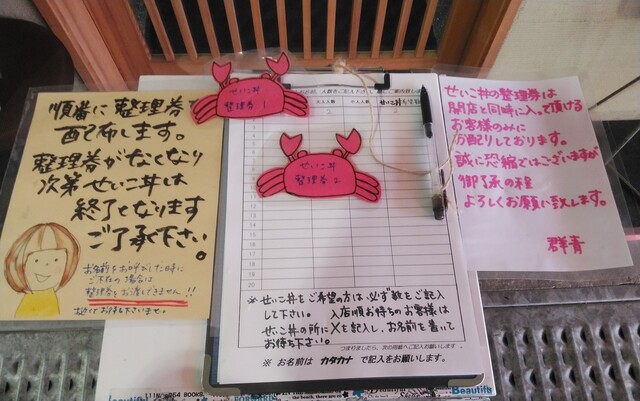 順番に整理券を
配布します。
整理券がなくなり
次第せいこ丼は
終了となります
ご了承下さい。
お名前をお呼びした時に
ご不在の場合は
整理券をお渡しできません!!
せいこ丼
整理券1
せいこ丼
整理券2
大人人数
小人人数
※せいこ丼をご希望の方は必ず数をご記入
して下さい。入店順お待ちのお客様は
せいこ丼の所に×を記入し、お名前を書いて
お待ち下さい。
つまりましたら、次の用紙へご記入お願いします
※ お名前は カタカナ で記入をお願いします。
せいこ丼の整理券は
開店と同時に入って頂ける
お客様のみに
お配りしております。
誠に恐縮ではございますが
御了承の程
よろしくお願い致します。
群青
Beautiful